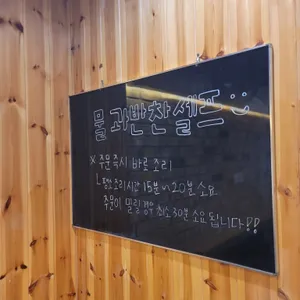 물과 반찬 셀프 :)
※ 주문즉시 바로 조리
ㄴ평균조리시간 15분~20분 소요
주문이 밀릴경우 최소30분 소요됩니다!!